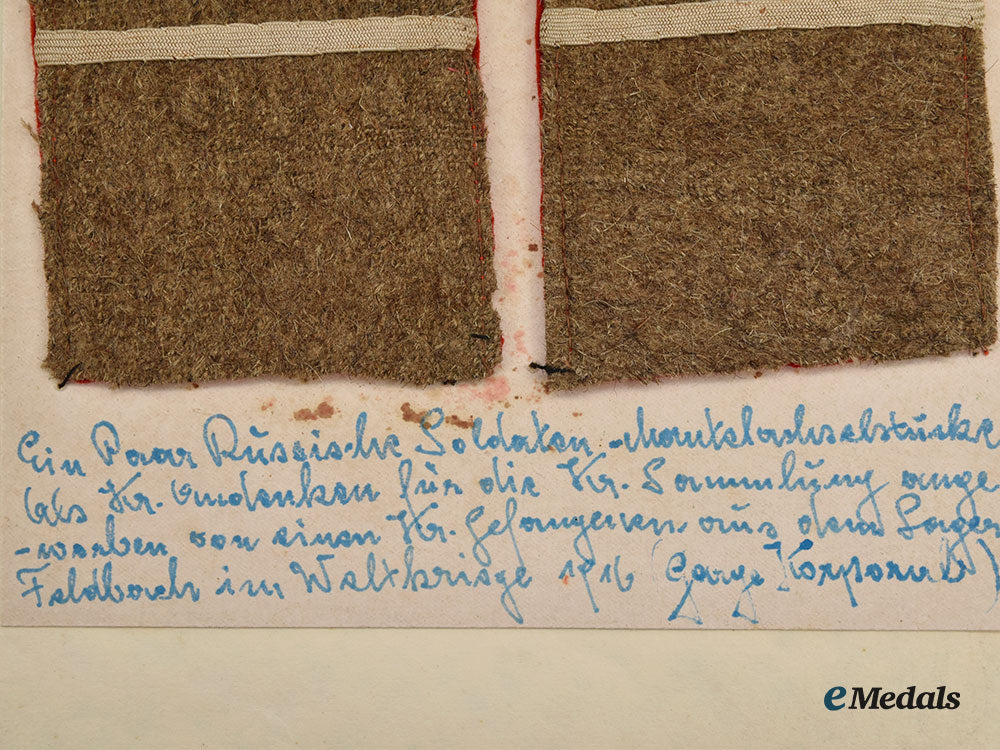 Ein Paar Russische Soldaten-Mantelachselstücke
Als Kr. Andenken für die Kr. Sammlung ange
-worben von einen Kr. Gefangenen aus dem Lager
Feldbach im Weltkriege 1916 ( Korporal )
eMedals